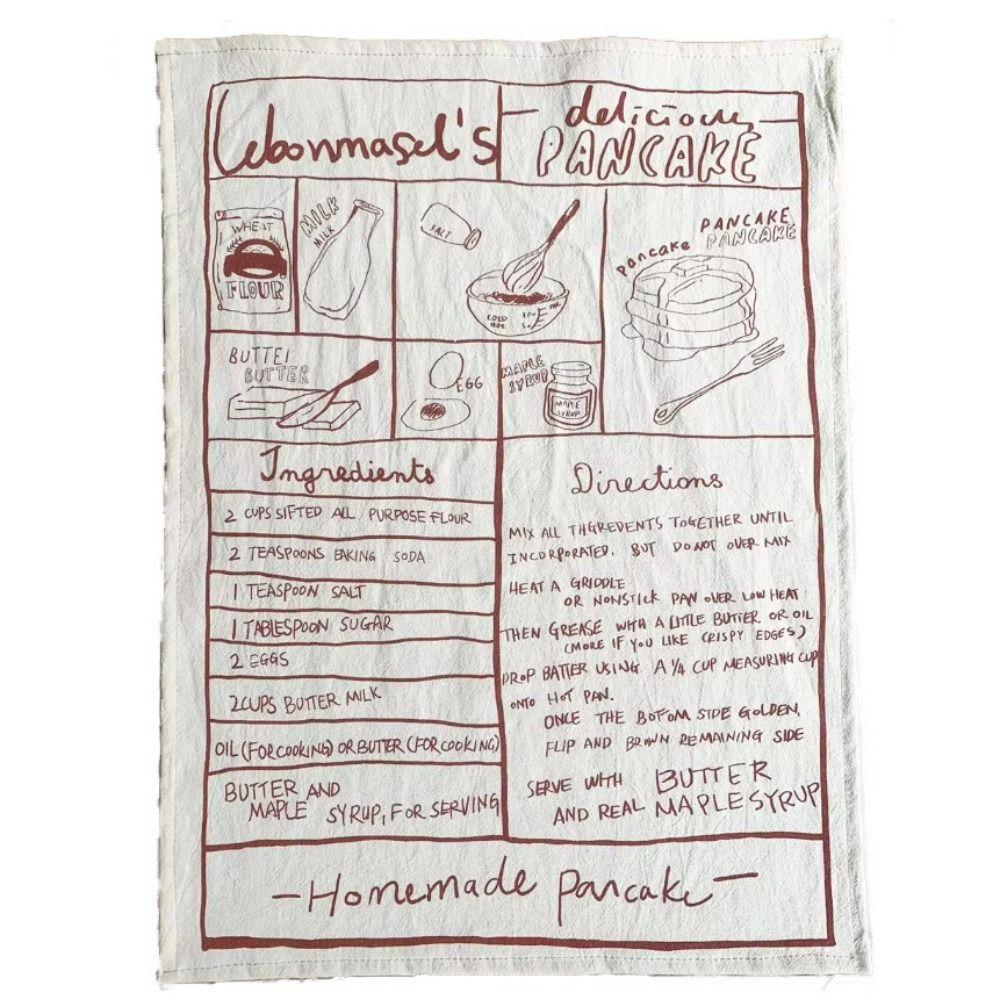 Lebonmasel's
delicious
PANCAKE
WHEAT
FLOUR
MILK
MILK
SALT
COLD
HOT
PANCAKE
PANCAKE
pancake
BUTTEI
BUTTER
EGG
MAPLE
SYRUP
MAPLE
SYRUP
Ingredients
2 CUPS SIFTED ALL PURPOSE FLOUR
2 TEASPOONS BAKING SODA
1 TEASPOON SALT
1 TABLESPOON SUGAR
2 EGGS
2 CUPS BUTTER MILK
OIL (FOR COOKING) OR BUTTER (FOR COOKING)
BUTTER AND
MAPLE SYRUP, FOR SERVING
Directions
MIX ALL THGREDENTS TOGETHER UNTIL
INCORPORATED. BUT DO NOT OVER MIX
HEAT A GRIDDLE
OR NONSTICK PAN OVER LOW HEAT
THEN GREASE WITH A LITTLE BUTTER OR OIL
(MORE IF YOU LIKE CRISPY EDGES)
DROP BATTER USING A 1/4 CUP MEASURING CUP
ONTO HOT PAN.
ONCE THE BOTTOM SIDE GOLDEN,
FLIP AND BROWN REMAINING SIDE
SERVE WITH BUTTER
AND REAL MAPLE SYRUP
- Homemade pancake -